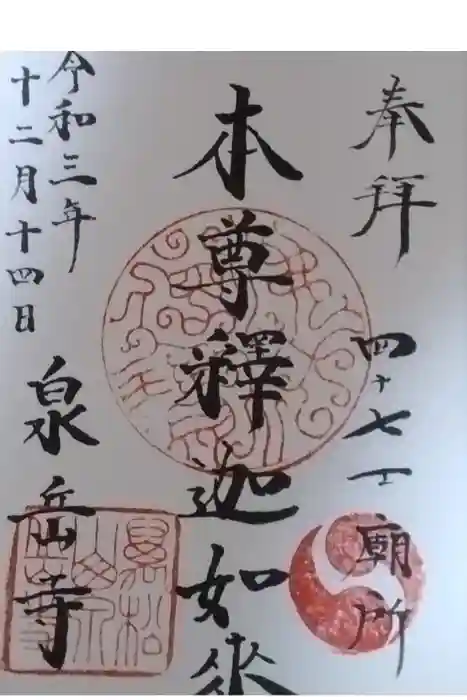 奉拝
四十七士廟所
本尊釋迦如来
泉岳寺
令和三年
十二月十四日